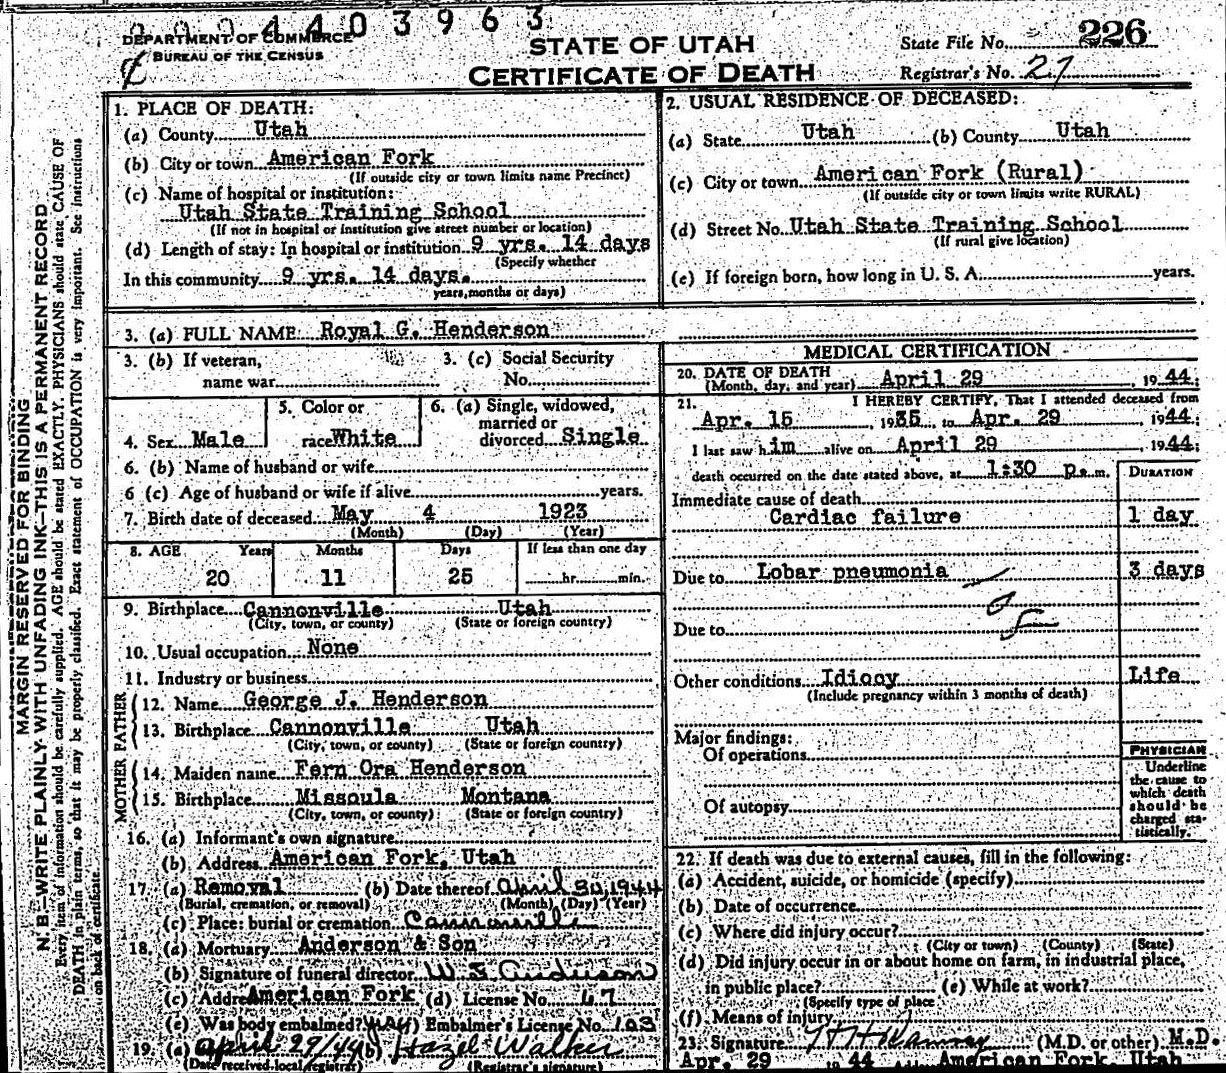 4 4 0 3 9 6 3
DEPARTMENT OF COMMERCE
BUREAU OF THE CENSUS
STATE OF UTAH
CERTIFICATE OF DEATH
State File No. 226
Registrar's No. 27
MARGIN RESERVED FOR BINDING
N. B.—WRITE PLAINLY WITH UNFADING INK—THIS IS A PERMANENT RECORD
Every item of information should be carefully supplied. AGE should be stated EXACTLY. PHYSICIANS should state CAUSE OF
DEATH in plain terms, so that it may be properly classified. Exact statement of OCCUPATION is very important. See instructions
on back of certificate.
1. PLACE OF DEATH:
(a) County Utah
(b) City or town American Fork
(If outside city or town limits name Precinct)
(c) Name of hospital or institution:
Utah State Training School
(If not in hospital or institution give street number or location)
(d) Length of stay: In hospital or institution 9 yrs. 14 days
(Specify whether
In this community 9 yrs. 14 days.
years, months or days)
2. USUAL RESIDENCE OF DECEASED:
(a) State Utah (b) County Utah
(c) City or town American Fork (Rural)
(If outside city or town limits write RURAL)
(d) Street No. Utah State Training School
(If rural give location)
(e) If foreign born, how long in U. S. A. years.
3. (a) FULL NAME Royal G. Henderson
3. (b) If veteran, 3. (c) Social Security
name war No.
4. Sex Male
5. Color or
race White
6. (a) Single, widowed,
married or
divorced Single
6. (b) Name of husband or wife
6 (c) Age of husband or wife if alive years.
7. Birth date of deceased May 4 1923
(Month) (Day) (Year)
8. AGE Years Months Days If less than one day
20 11 25 hr. min.
9. Birthplace Cannonville Utah
(City, town, or county) (State or foreign country)
10. Usual occupation None
11. Industry or business
FATHER
12. Name George J. Henderson
13. Birthplace Cannonville Utah
(City, town, or county) (State or foreign country)
MOTHER
14. Maiden name Fern Ora Henderson
15. Birthplace Missoula Montana
(City, town, or county) (State or foreign country)
16. (a) Informant's own signature
(b) Address American Fork, Utah
17. (a) Removal (b) Date thereof April 30, 1944
(Burial, cremation, or removal) (Month) (Day) (Year)
(c) Place: burial or cremation Cannonville
18. (a) Mortuary Anderson & Son
(b) Signature of funeral director W. S. Anderson
(c) Address American Fork (d) License No. 47
(e) Was body embalmed? Embalmer's License No. 103
19. (a) April 29/44 (b) Hazel Walker
(Date received local registrar) (Registrar's signature)
MEDICAL CERTIFICATION
20. DATE OF DEATH
(Month, day, and year) April 29, 1944;
21. I HEREBY CERTIFY, That I attended deceased from
Apr. 15 1935 to Apr. 29, 1944;
I last saw him alive on April 29 1944;
death occurred on the date stated above, at 1:30 p.m.
DURATION
Immediate cause of death
Cardiac failure 1 day
Due to Lobar pneumonia 3 days
Due to
Other conditions Idiocy Life
(Include pregnancy within 3 months of death)
Major findings:
Of operations
Of autopsy
PHYSICIAN
Underline
the cause to
which death
should be
charged sta-
tistically.
22. If death was due to external causes, fill in the following:
(a) Accident, suicide, or homicide (specify)
(b) Date of occurrence
(c) Where did injury occur?
(City or town) (County) (State)
(d) Did injury occur in or about home on farm, in industrial place,
in public place? (e) While at work?
(Specify type of place
(f) Means of injury
23. Signature (M.D. or other) M.D.
Apr. 29 1944 American Fork, Utah